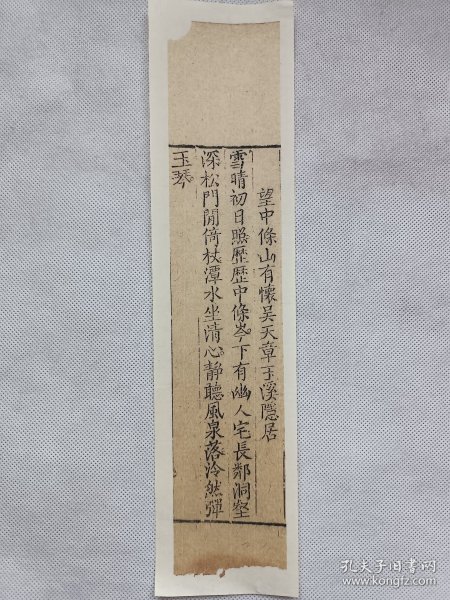 望中條山有懷吴天章玉溪隱居
雪晴初日照歷歷中條岑下有幽人宅長鄰洞壑
深松門閒倚杖潭水坐清心静聽風泉落泠然彈
玉琴
孔夫子旧书网
www.kongfz.com